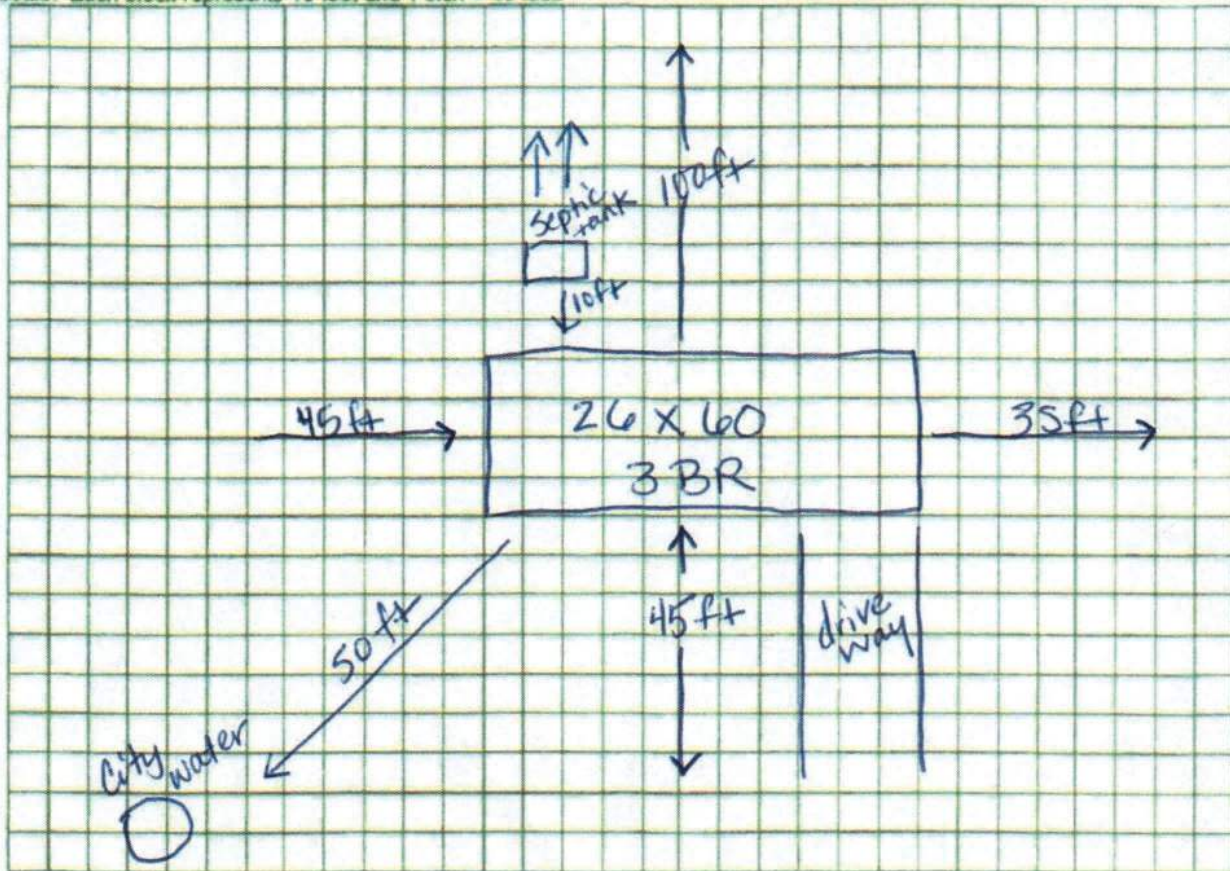 100ft
septic
tank
10ft
45ft
26 X 60
3 BR
35ft
50ft
45ft
drive
way
City water